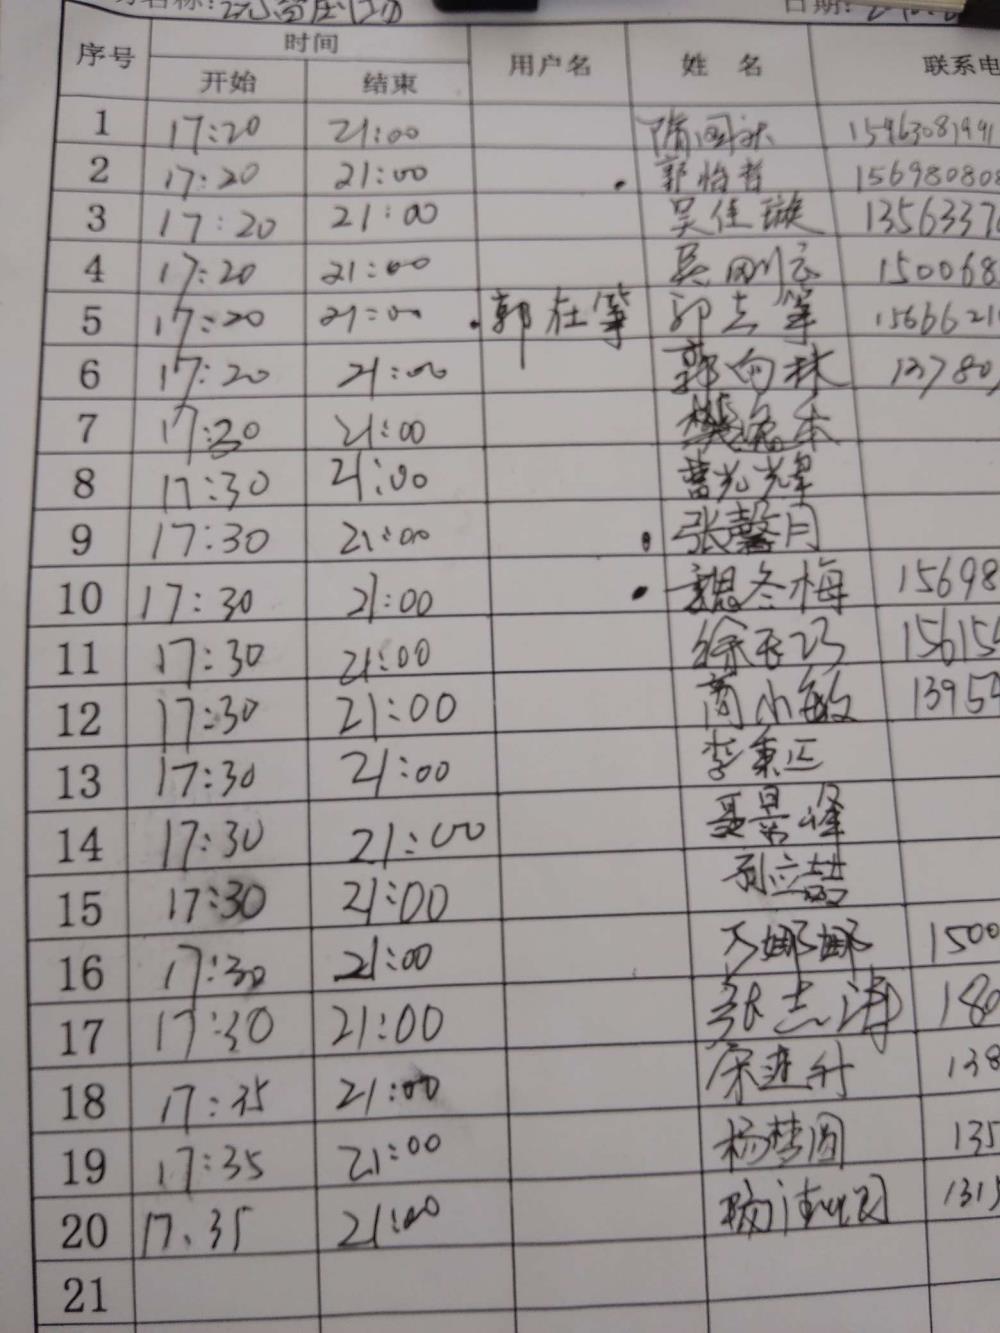 名称:
日期:
序号 时间 用户名 姓 名 联系电
开始 结束
1 17:20 21:00 隋国 15963081991
2 17:20 21:00 郭怡哲 156980808
3 17:20 21:00 吴佳璇 1356337
4 17:20 21:00 吴刚 150068
5 17:20 21:00 郭在筆 郭 筆 1566621
6 17:20 21:00 郭向林 13780
7 17:30 21:00 樊 本
8 17:30 21:00 曹光辉
9 17:30 21:00 张馨月
10 17:30 21:00 魏冬梅 15698
11 17:30 21:00 徐玉巧 15615
12 17:30 21:00 商小敏 1395
13 17:30 21:00 李秉正
14 17:30 21:00 聂景峰
15 17:30 21:00 喆
16 17:30 21:00 娜娜 1500
17 17:30 21:00 张志涛 180
18 17:35 21:00 宋进升 138
19 17:35 21:00 杨梦圆 135
20 17.35 21:00 1315
21